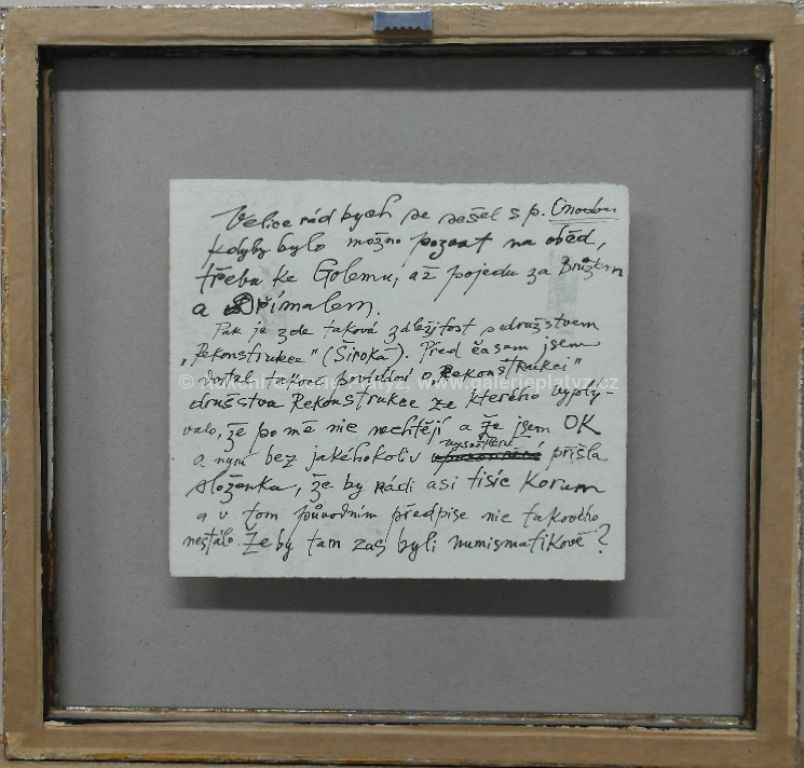 Velice rád bych se sešel s p.
kdyby bylo možno pozvat na oběd,
třeba ke Golemu, až pojedu za
a Dřímalem.
Pak je zde taková záležitost s družstvem
„Rekonstrukce" (Široká). Před časem jsem
dostal takové povídání o „Rekonstrukci"
© Aukční Galerie Platýz, www.galerieplatyz.cz
družstva Rekonstrukce ze kterého vyplý-
valo, že po mě nic nechtějí a že jsem OK
vysvětlení
a nyní bez jakéhokoliv přišla
složenka, že by rádi asi tisíc Korun
a v tom původním předpise nic takového
nestálo. Že by tam zas byli numismatikové?